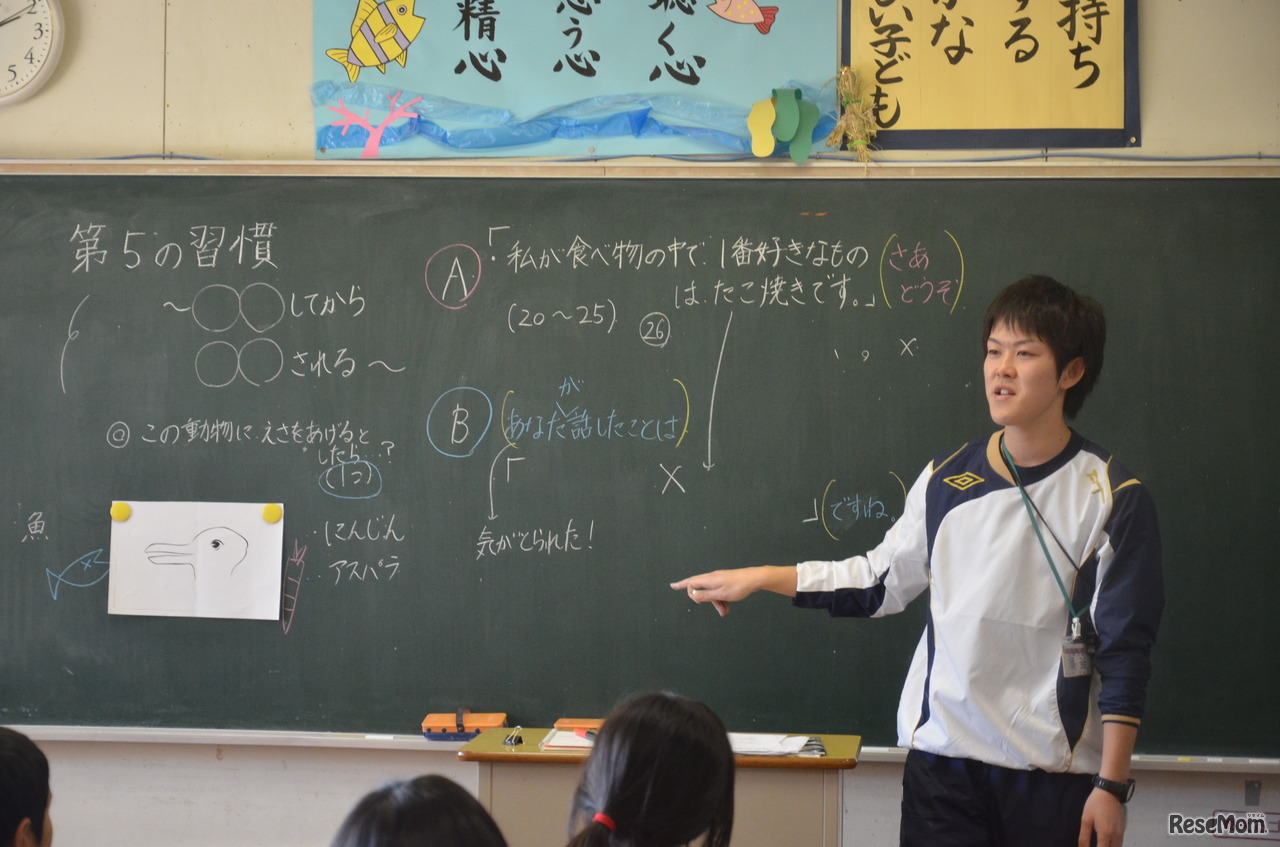 2
3
4
5
精心
思う心
聴く心
持ち
する
かな
い子ども
第5の習慣
〜○○してから
○○される〜
◎この動物に、えさをあげると
したら…?
(1つ)
魚
にんじん
アスパラ
A
「私が食べ物の中で、1番好きなもの
は、たこ焼きです。」
(さあ
どうぞ)
(20〜25)
26
、 , ×
B
(あなたが話したことは)
「
×
」(ですね。)
気がとられた!
ReseMom
リセマム